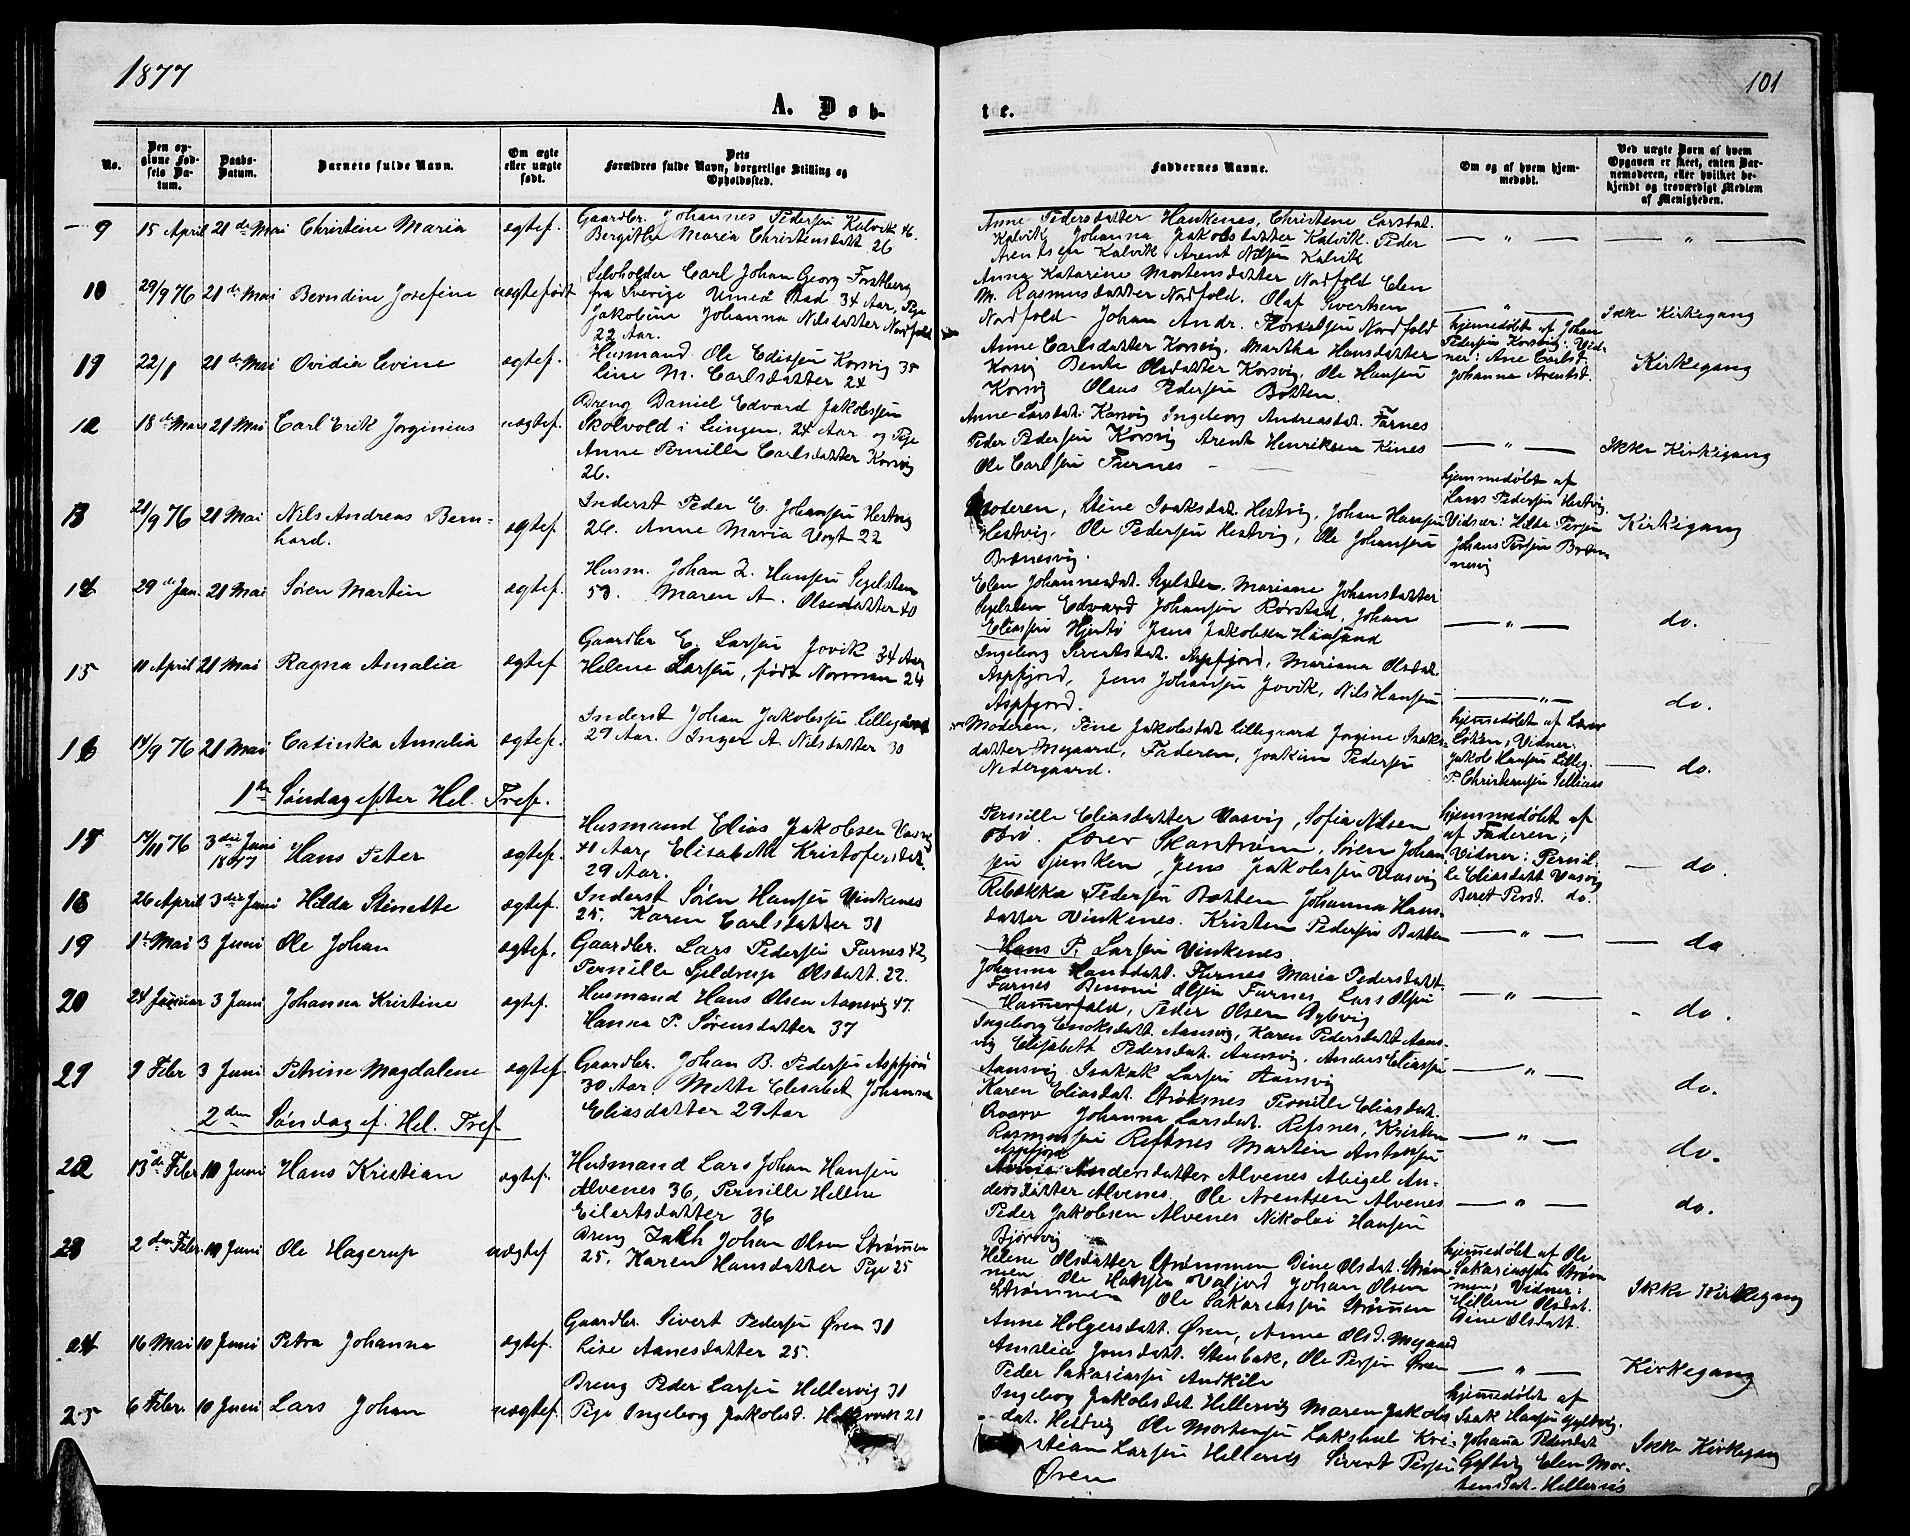 1877
101
A. Døb-
te.
No.
Den op-
givne Fød-
sels Da-
tum.
Daabs-
Datum.
Barnets fulde Navn.
Om ægte
eller uægte
født.
Dets
Forældres fulde Navn, borgerlige Stilling og
Opholdssted.
Faddernes Navne.
Om og af hvem hjem-
medøbt.
Ved uægte Børn af hvem
Opgaven er skeet, enten Bar-
nemoderen, eller hvilket be-
kjendt og troværdigt Medlem
af Menigheden.
9 15 April 21de Mai Christine Maria ægtef.
Gaardbr. Johannes Pedersen Kalvik 46.
Bergithe Maria Christensdatt 26
Anne Pedersdatter Haukenes, Christene Larsdat.
Kalvik, Johanna Jakobsdatter Kalvik. Peder
Arentsen Kalvik Arent Nilsen Kalvik
— " —
— " —
10 29/9 76 21de Mai Berndine Josefine uægtefødt
Selvholder Carl Johan Georg Forstberg
fra Sverige Umeå Stad 34 Aar, Pige
Jakobine Johanna Nilsdatter Nordfold
22 Aar.
Anna Katarine Mortensdatter Nordfold Elen
M. Rasmusdatter Nordfold. Olaf Sivertsen
Nordfold Johan Andr. Nordfold
— " —
Ikke Kirkegang
19 22/1 21de Mai Ovidia Evine ægtef.
Husmand Ole Edissen Korsvig 35
Line M. Carlsdatter 24
Anne Carlsdatter Korsvig, Martha Hansdatter
Korsvig Bente Olsdatter Korsvig, Ole Hansen
Korsvig Olaus Pedersen Botten.
hjemmedøbt af Johan
Pedersen Korsvig. Vid-
ner: Ane Carlsd.
Johanna Arentsd.
Kirkegang
12 18de Mars 21 Mai Carl Erik Jorginius uægtef.
Dreng Daniel Edvard Jakobsen
Skolvold i Leingen. 24 Aar og Pige
Anne Pernille Carlsdatter Korsvig
26.
Anne Larsdat. Korsvig Ingeborg Andreasdat. Furnes
Peder Pedersen Korsvig Arent Henriksen Kines
Ole Carlsen Furnes
— " —
Ikke Kirkegang
13 21/9 76 21 Mai Nils Andreas Bern-
hard. ægtef.
Inderst Peder E. Johansen Hestvig
26. Anne Maria Vogt 22
Moderen, Stine Isaksdat. Hestvig, Johan Hansen
Hestvig. Ole Pedersen Hestvig, Ole Johansen
Brænesvig.
hjemmedøbt af
Hans Pedersen Hestvig.
Vidner: Hilda Persen
Johans Persen Bræn-
nesvig
Kirkegang
14 29de Jan. 21 Mai Søren Martin ægtef.
Husm. Johan Z. Hansen Segelsten
53. Maren A. Olsendatter 40
Elen Johannesdat. Segelsten, Mariane Johansdatter
Segelsten Edvard Johansen Rørstad, Johan
Eliassen Hjertø Jens Jakobsen Hansund
— " —
do.
15 11 April 21 Mai Ragna Amalia ægtef
Gaardbr E. Larsen Jovik 34 Aar
Helene Larsen, født Norman 24
Ingeborg Sivertsdat. Aspfjord, Mariana Olsdat.
Aspfjord, Jens Johansen Jovik, Nils Hansen
Aspfjord.
— " —
do.
16 14/9 76 21 Mai Catinka Amalia ægtef.
Inderst Johan Jakobsen Lillegaard
29 Aar. Inger A. Nilsdatter 30
Moderen, Tine Jakobsdat Lillegaard Jorgine Isaks-
datter Megaard, Faderen, Joakim Pedersen
Nedergaard.
hjemmedøbt af Lærer
Loken, Vidner:
Jakob Hansen Lilleg.
P. Christensen Selliaas
— do.
1ste Søndag efter Hel. Tref.
17 14/11 76 3die Juni
1877 Hans Peter ægtef.
Husmand Elias Jakobsen Vasvig
41 Aar, Elisabeth Kristofersdat.
29 Aar.
Pernille Eliasdatter Vasvig, Sofia Nilsen
Lærer Skantrøm, Søren Johan-
sen Sjunken, Jens Jakobsen Vasvig
hjemmedøbt af
af Faderen,
Vidner: Pernil-
le Eliasdatt Vasvig
Beret Persd. do.
— do.
18 26 April 3die Juni Hilda Stinette ægtef.
Inderst Søren Hansen Vinkenes
25. Karen Carlsdatter 31
Rebekka Pedersen Botten Johanna Hans-
datter Vinkenes. Kristen Pedersen Botten
Hans P. Larsen Vinkenes
— " —
— do
19 1ste Mai 3 Juni Ole Johan ægtef.
Gaardbr. Lars Pedersen Furnes 42,
Pernille Geldrup Olsdatt. 22.
Johanna Hansdatt. Furnes Maria Pedersdatt
Furnes Benoni Olsen Furnes Lars Olsen
Hamerfald, Peder Olsen Gyltvig
— " —
do.
20 24 Januar 3 Juni Johanna Kristine ægtef.
Husmand Hans Olsen Aansvig 47.
Hanna P. Sørensdatter 37
Ingeborg Enoksdatt. Aansvig, Karen Pedersdatt Aans-
vig Elisabeth Pedersdat. Aansvig, Anders Eliassen
Aansvig Isakak Larsen Aansvig
— " —
do.
21 9 Febr 3 Juni Petrine Magdalene ægtef
Gaardbr. Johan B. Pedersen Aspfjord
30 Aar. Mette Elisabet Johanna
Eliasdatter 29 Aar
Karen Eliasdat. Strøksnes Pernille Eliasdat.
Johanna Larsdat. Refsnes, Kristen
Rasmussen Refsnes Martin Antonsen
Aspfjord
— " —
do.
2den Søndag ef. Hel. Tref.
22 13de Febr 10 Juni Hans Kristian ægtef.
Husmand Lars Johan Hansen
Alvenes 36, Pernille Helene
Eilertsdatter 36
Anne Andersdatter Alvenes Abigel An-
dersdatter Alvenes, Ole Arentsen Alvenes
Peder Jakobsen Alvenes Nikolei Hansen
Bjørvig
— " —
do.
23 2den Febr. 10 Juni Ole Hagerup uægtef
Dreng Zakh Johan Olsen Strømmen
25. Karen Hansdatter Pige 25
Helene Olsdatter Strømmen Dine Olsdat. Strøm-
men, Ole Hansen Valjord Johan Olsen
Strømmen Ole Sakariassen Strømmen
hjemmedøbt af Ole
Sakariassen Strøm-
men, Vidner:
Hellene Olsdat.
Dine Olsdatt.
Ikke Kirkegang
24 16 Mai 10 Juni Petra Johanna ægtef.
Gaardbr. Sivert Pedersen Øren 31
Lise Aanesdatter 25.
Anne Holgersdatt. Øren, Anne Olsd. Megaard
Amalia Jonsdatt. Stenbak, Ole Persen Øren
Peder Sakariassen Andkile
— " —
Kirkegang
25 6 Febr. 10 Juni Lars Johan uægtef.
Dreng Peder Larsen Hellervig 31
Pige Ingeborg Jakobsd. 21
Ingeborg Jakobsdat Hellervig Maren Jakobs-
dat. Hestvig Ole Mortensen Lakshul Kri-
stian Larsen Hellernes Sivert Persen
Øren
hjemmedøbt af
Isak Hansen Gyltvig.
Johana Pedersdat
Gyltvig Elen Mor-
tensdat. Hellernes
Ikke Kirkegang